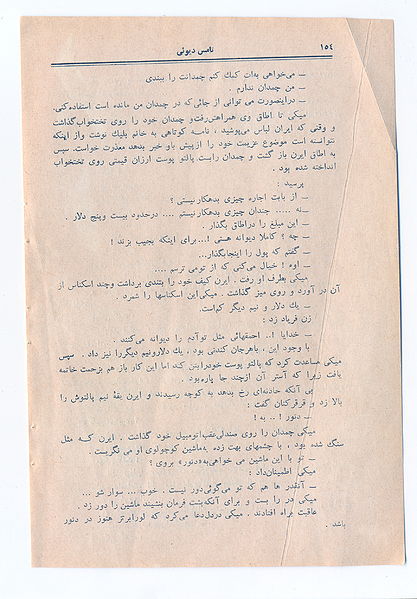 ١٥٤
تامس دیوئی
ــ می‌خواهی به‌ات کمك کنم چمدانت را ببندی
ــ من چمدان ندارم .
ــ دراینصورت می توانی از جائی‌که در چمدان من مانده است استفاده‌کنی.
میکی تا اطاق وی همراهش‌رفت‌و چمدان خود را روی تختخواب‌گذاشت
و وقتی که ایرن لباس می‌پوشید ، نامه کوتاهی به خانم بلیك نوشت واز اینکه
نتوانسته است موضوع عزیمت خود را ازپیش باو خبر بدهد معذرت خواست. سپس
به اطاق ایرن باز گشت و چمدان رابست پالتو پوست ارزان قیمتی روی تختخواب
انداخته شده بود .
پرسید :
ــ از بابت اجاره چیزی بدهکارنیستی ؟
ــ نه ..... چندان چیزی بدهکارنیستم .... درحدود بیست وپنج دلار .
ــ این مبلغ را دراطاق بگذار .
ــ چه ؟ کاملا دیوانه هستی !... برای اینکه بجیب بزند !
ــ گفتم که پول را اینجابگذار...
ــ اوه ! خیال می‌کنی که از تومی ترسم ....
میکی بطرف او رفت . ایرن کیف خود را بتندی برداشت وچند اسکناس از
آن در آورد و روی میز گذاشت . میکی‌این اسکناسها را شمرد .
ــ یك دلار و نیم دیگر کم‌است.
زن فریاد زد :
ــ خدایا !.. احمقهائی مثل توآدم را دیوانه می‌کنند .
با وجود این ، باهرجان کندنی بود ، یك دلارونیم دیگررا نیز داد . سپس
میکی مساعدت کرد که پالتو پوست خودراپتن کند اما این کار باز هم بزحمت خاتمه
یافت زیرا که آستر آن ازچند جا پاره‌بود .
بی آنکه حادثه‌ای رخ بدهد به کوچه رسیدند و ایرن یقهٔ نیم پالتوش را
بالا زد و قرقرکنان گفت :
ــ دنور ! .. به !
میکی چمدان را روی صندلی‌عقب‌اتومبیل خود گذاشت . ایرن که مثل
سنگ شده بود ، با چشمهای بهت زده به‌ماشین کوچولوی او می نگریست .
ــ تو با این ماشین می خواهی‌به«دنور» بروی ؟
میکی اطمینان‌داد :
ــ آنقدر ها هم که تو می‌گوئی‌دور نیست . خوب ... سوار شو ...
میکی در را بست و برای آنکه‌پشت فرمان بنشیند ماشین را دور زد .
عاقبت براه افتادند . میکی دردل‌دعا می‌کرد که لورابرتز هنوز در دنور
باشد .